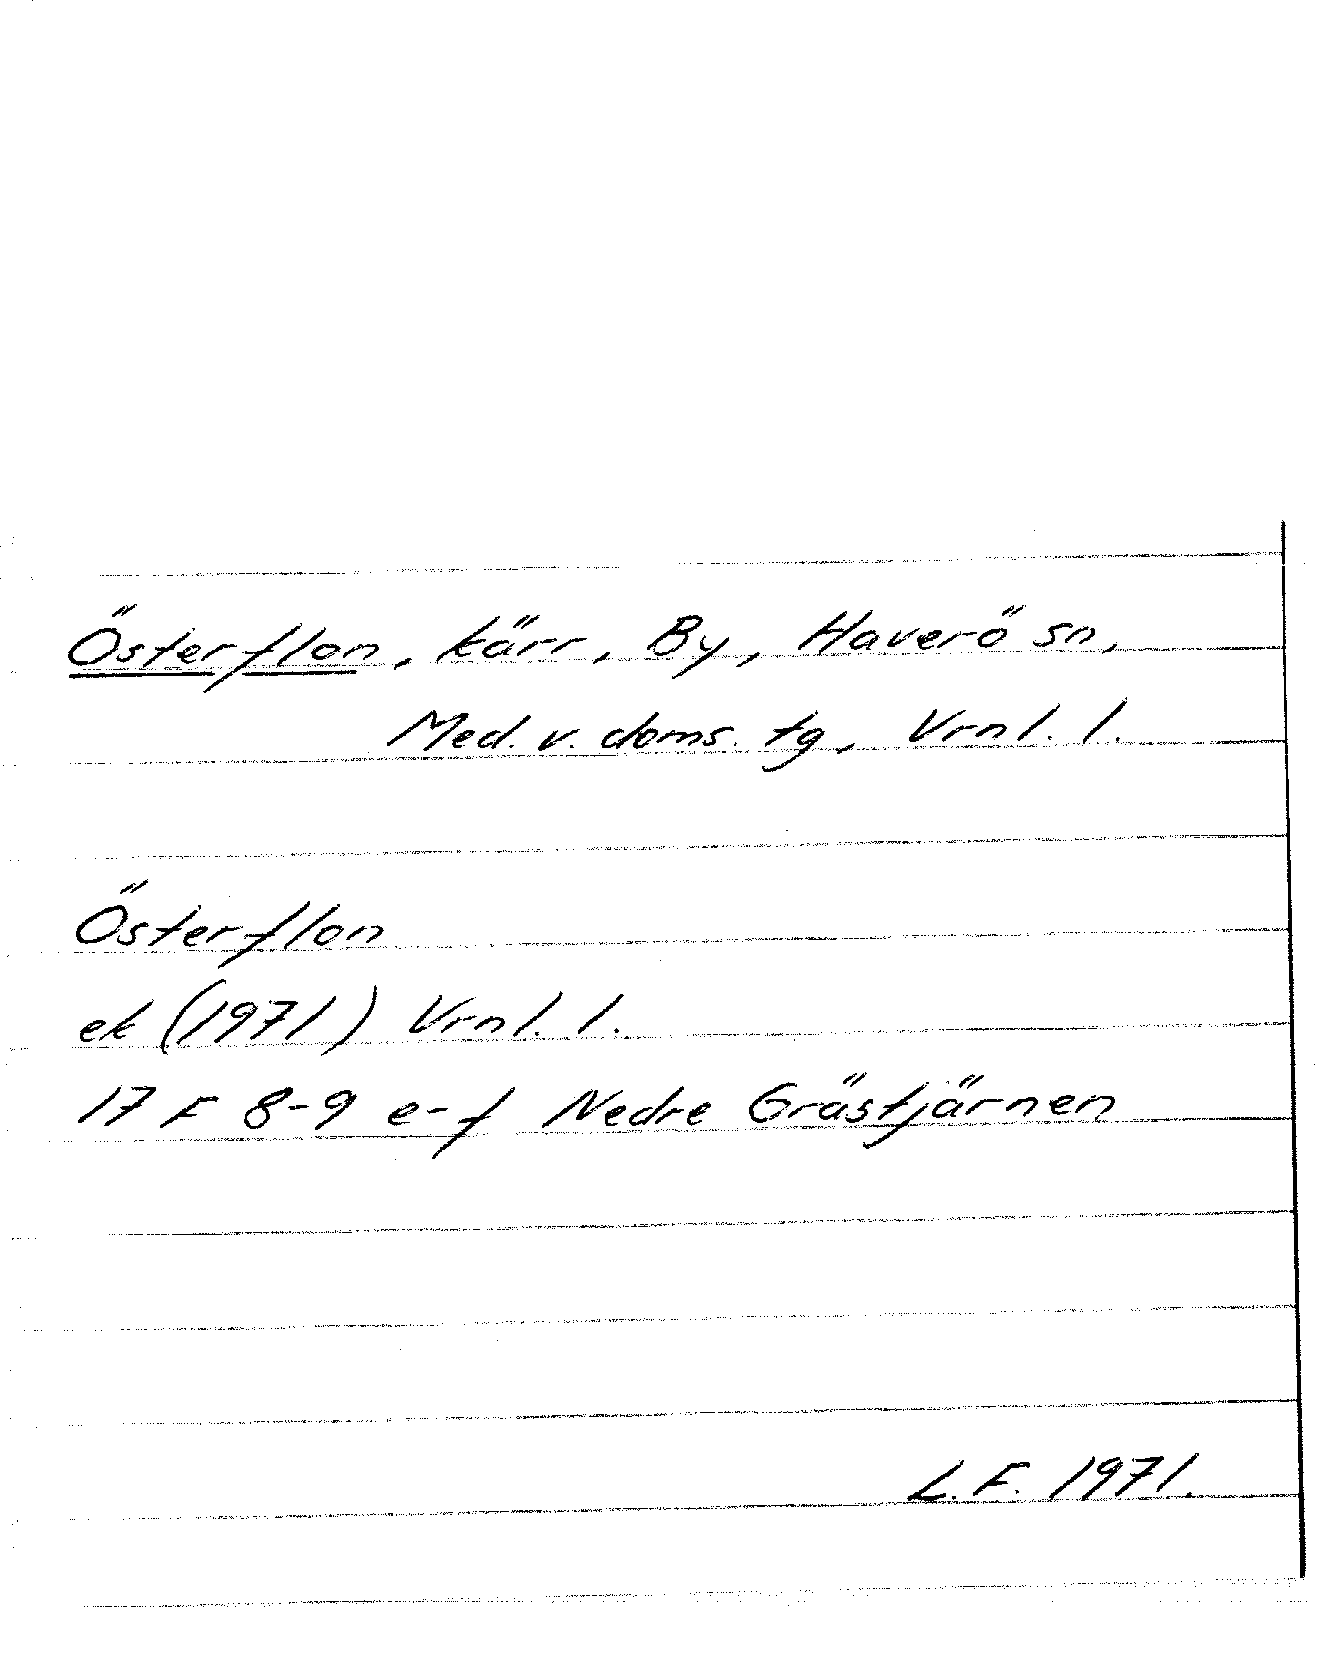 Österflon, kärr, By, Haverö sn,
Med. v. doms. tg, Vrnl. l.
Österflon
ek (1971) Vrnl. l.
17 F 8-9 e-f Nedre Grästjärnen
L.F. 1971.